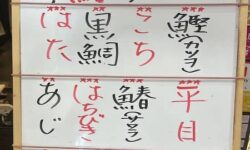 鰹カツヲ
こち
黒鯛
はた
平目
鰆(サワラ)
はちびき
あじ